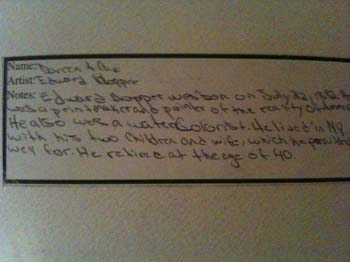 Name: Darren
Artist: Edward Hopper
Notes: Edward Hopper was born on July 22, 1882. He
was a printmaker and painter of the reality of
He also was a watercolorist. He lived in NY
with his two children and wife, which he provided
well for. He retired at the age of 40.